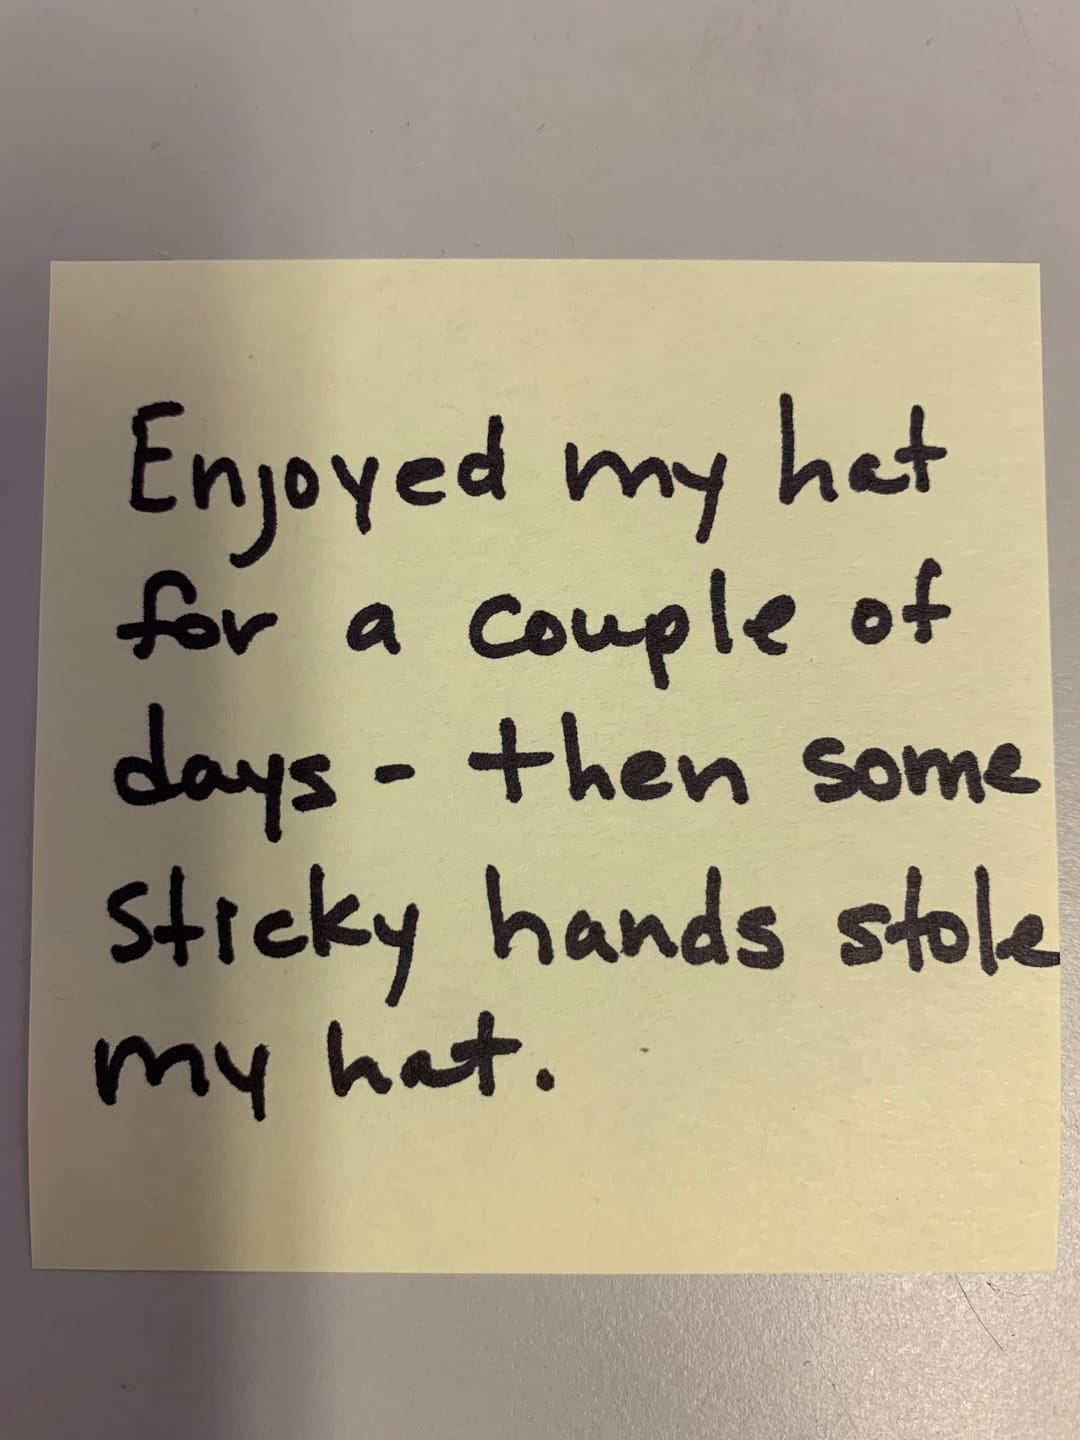 Enjoyed my hat
for a couple of
days - then some
sticky hands stole
my hat.